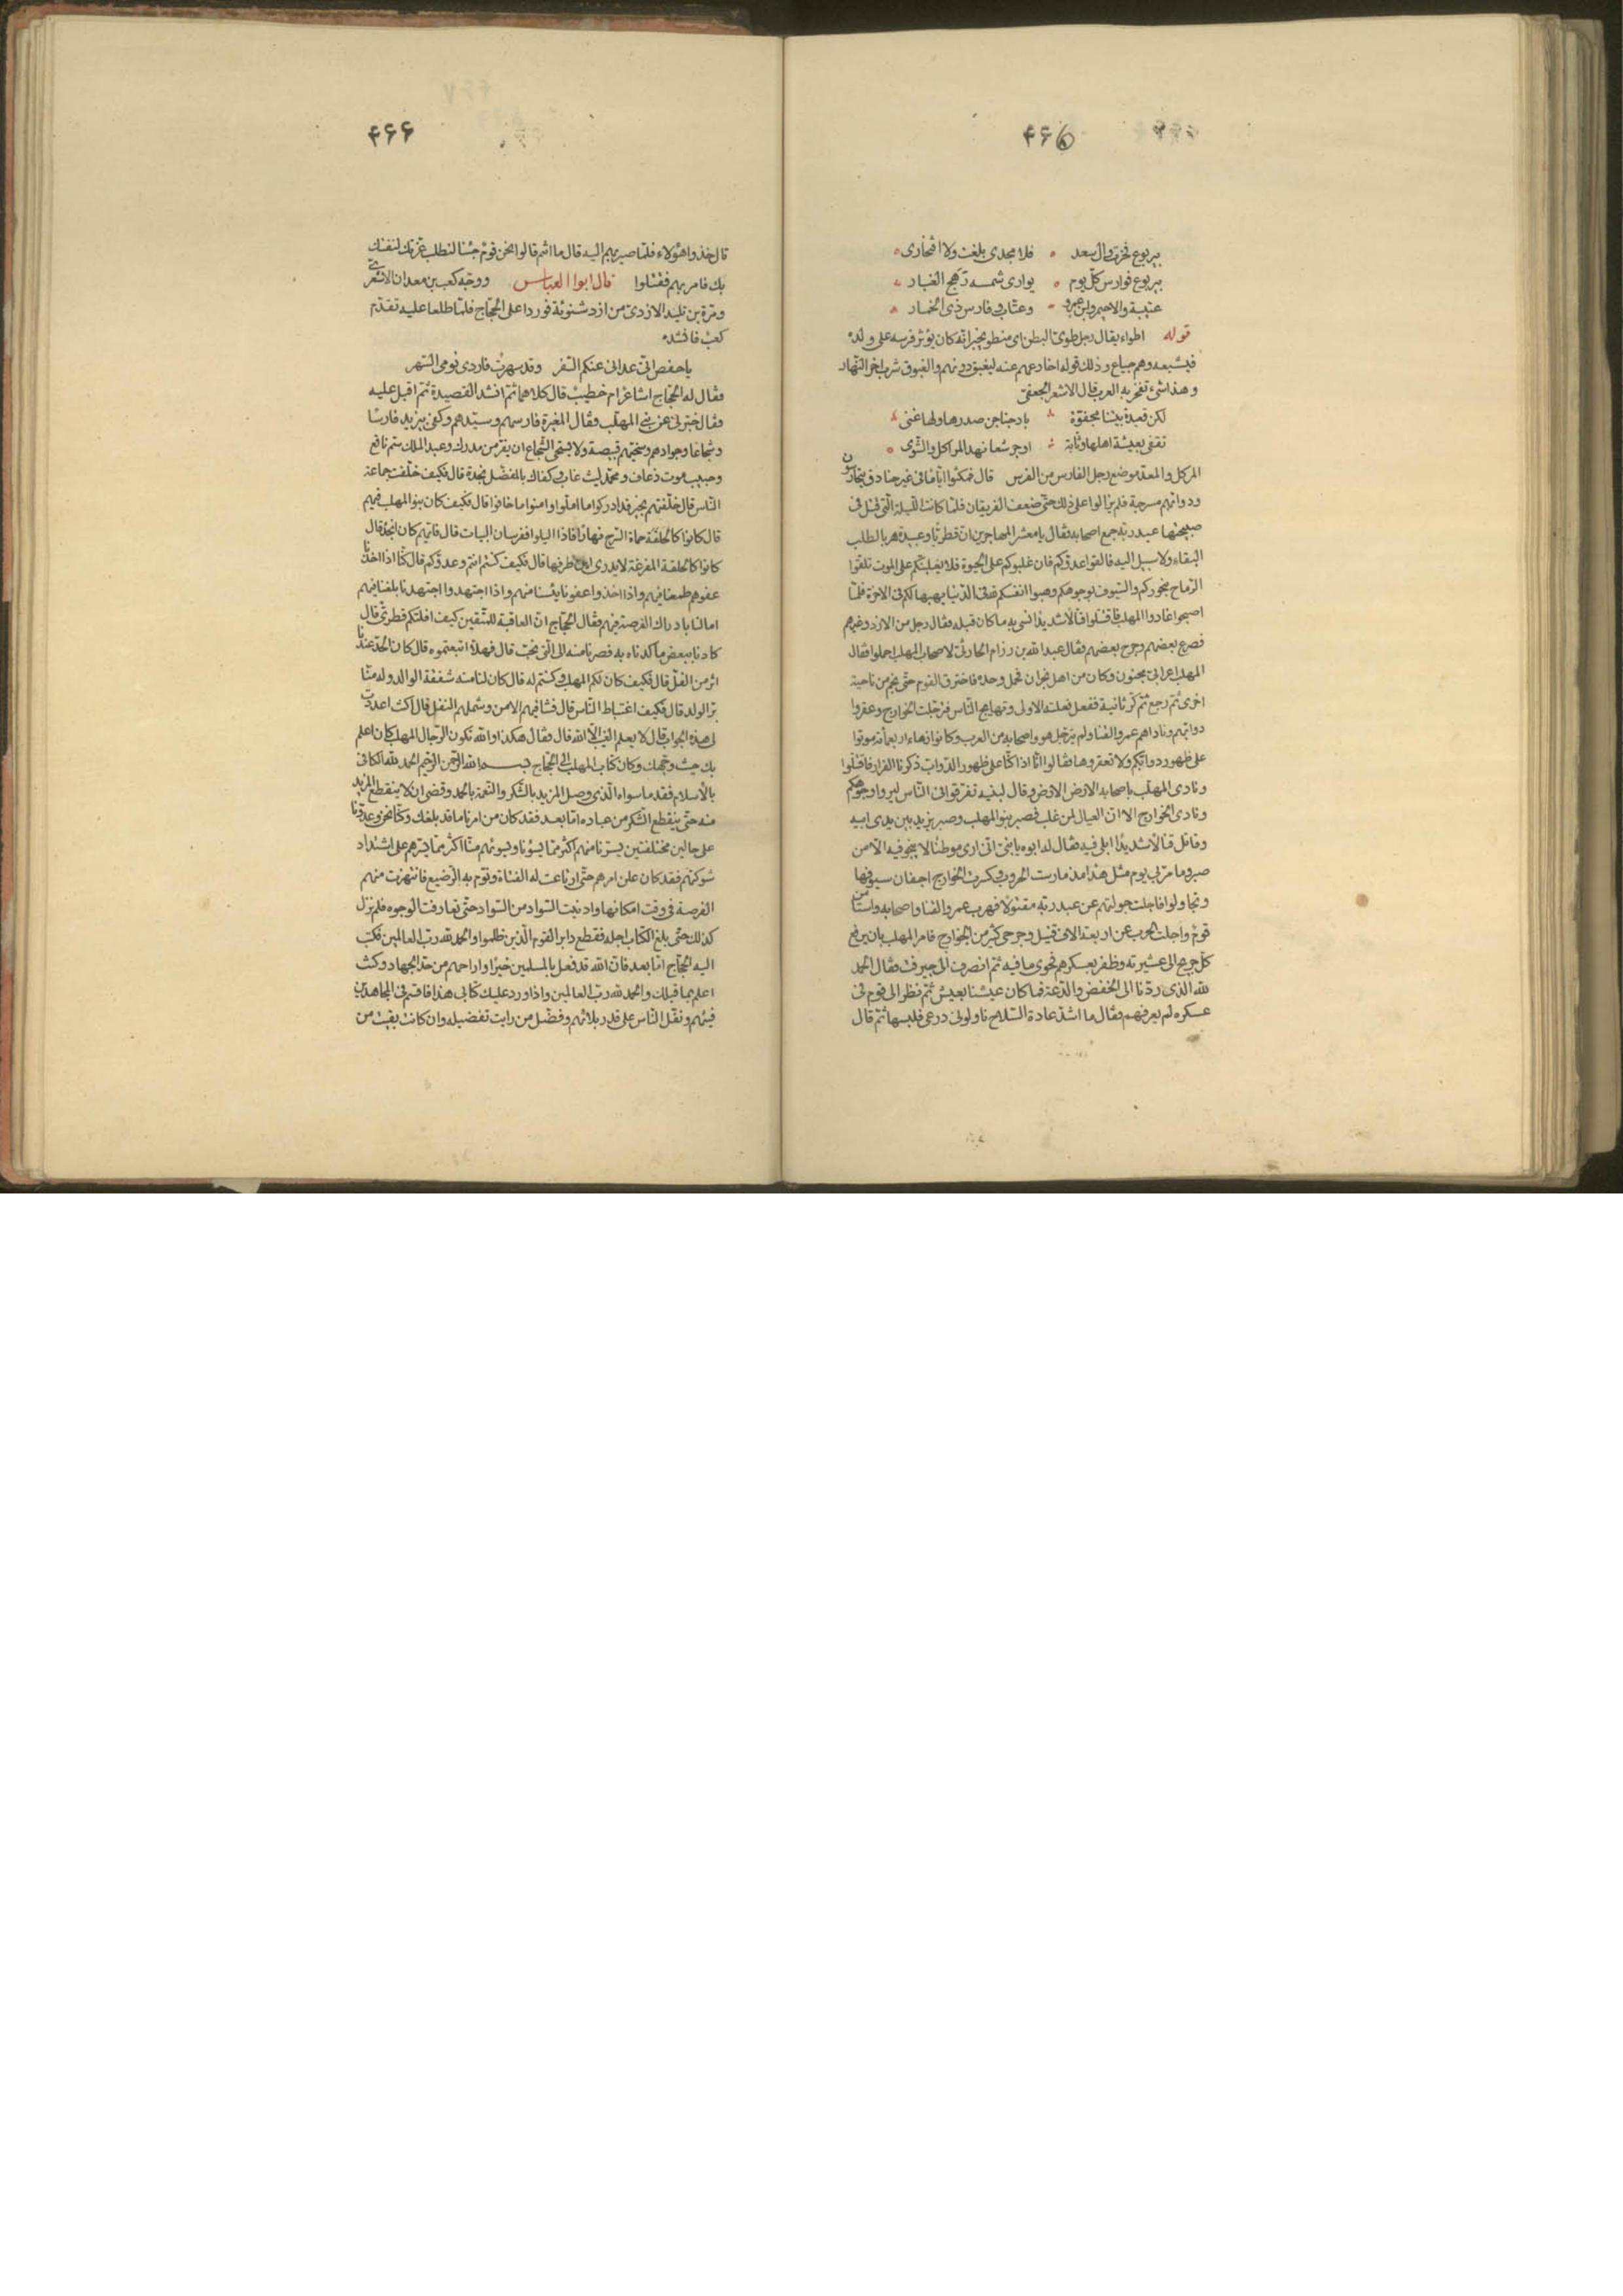 ۴۶۵
بيربوع فخرت وال سعد فلا مجدى بلغت ولا افتخارى
بيربوع فوارس كلّ يوم يوارى شمسه رهج الغبار
عتيبة والاحيمر وابن عمرو وعتّاب وفارس ذى الخمار
قوله اطواء يقال رجل طوىّ البطن اى منطو يخبر انّه كان يؤثر فرسه على ولده
فيشبعه وهم جياع وذلك قوله اخادعهم عنه ليغبق دونهم والغبوق شرب اخر النّهار
وهذا شىء تفخر به العرب قال الاشعر الجعفىّ
لكن قعيدة بيتنا مجفوّة باد جناجن صدرها ولها غنى
تقفى بعيشة اهلها وثّابة او جرشعا نهد المراكل والشّوى
المركل والمعدّ موضع رجل الفارس من الفرس قال فمكثوا ايّاما فى غير خنادق يتحارسون
ودوابّهم مسرجة فلم يزالوا على ذلك حتّى ضعف الفريقان فلمّا كانت اللّيلة الّتى قتل فى
صبيحتها عبد ربّه جمع اصحابه فقال يا معشر المهاجرين انّ قطريّا وعبيدة هربا لطلب
البقاء ولا سبيل اليه فالقوا عدوّكم فان غلبوكم على الحيوة فلا يغلبنّكم على الموت تلقّوا
الرّماح بنحوركم والسّيوف بوجوهكم وهبوا انفسكم لله فى الدّنيا يهبها لكم فى الاخرة فلمّا
اصبحوا غادوا المهلّب فاقتتلوا قتالا شديدا نسى به ما كان قبله فقال رجل من الازد وغيرهم
فصرع بعضهم وجرح بعضهم وقال عبد الله بن رزام الحارثىّ لاصحاب المهلّب احملوا فقال
المهلّب اعرابىّ مجنون وكان من اهل نجران فحمل وحده فاخترق القوم حتّى نجم من ناحية
اخرى ثمّ رجع ثمّ كرّ ثانية ففعل فعلته الاولى وتهايج النّاس فترجّلت الخوارج وعقروا
دوابّهم وناداهم عمرو القنا ولم يترجّل هو واصحابه من العرب وكانوا زهاء اربعمائة موتوا
على ظهور دوابّكم ولا تعقروها فقالوا انّا اذا كنّا على ظهور الدّوابّ ذكرنا الفرار فاقتتلوا
ونادى المهلّب باصحابه الارض الارض وقال لبنيه تفرّقوا فى النّاس ليروا وجوهكم
ونادى الخوارج الا انّ العيال لمن غلب فصبر بنو المهلّب وصبر يزيد بين يدى ابيه
وقاتل قتالا شديدا ابلى فيه فقال له ابوه يا بنىّ انّى ارى موطنا لا ينجو فيه الّا من
صبر وما مرّ بى يوم مثل هذا مذ مارست الحروب وكسرت الخوارج اجفان سيوفها
وتجاولوا فاجلت جولتهم عن عبد ربّه مقتولا فهرب عمرو القنا واصحابه واستامن
قوم واجلت الحرب عن اربعة الاف قتيل وجرحى كثير من الخوارج فامر المهلّب بان يرفع
كلّ جريح الى عشيرته وظفر بعسكرهم فحوى ما فيه ثمّ انصرف الى جيرفت فقال الحمد
لله الذى ردّنا الى الخفض والدّعة فما كان عيشنا بعيش ثمّ نظر الى قوم فى
عسكره لم يعرفهم فقال ما اشدّ عادة السّلاح ناولونى درعى فلبسها ثمّ قال
۴۶۶
قال خذوا هؤلاء فلمّا صير بهم اليه قال ما انتم قالوا نحن قوم جئنا لنطلب غرّتك لنفتك
بك فامر بهم فقتلوا قال ابوا العباس ووجّه كعب بن معدان الاشعرىّ
ومرّة بن تليد الازدىّ من ازد شنوئة فوردا على الحجّاج فلمّا طلعا عليه تقدّم
كعب فانشده
يا حفص انّى عدانى عنكم السّفر وقد سهرت فاردى نومى السّهر
فقال له الحجّاج اشاعر ام خطيب قال كلاهما ثمّ انشد القصيدة ثمّ اقبل عليه
وقال خبّرنى عن بنى المهلّب وقال المغيرة فارسهم وسيّدهم وكفى بيزيد فارسا
وشجاعا وجوادهم وسخيّهم قبيصة ولا يستحى الشّجاع ان يفرّ من مدرك وعبد الملك سمّ نافع
وحبيب موت ذعاف ومحمّد ليث غاب وكفاك بالمفضّل نجدة قال فكيف خلّفت جماعة
النّاس قال خلّفتهم بخير قد ادركوا ما امّلوا وامنوا ما خافوا قال فكيف كان بنو المهلّب فيهم
قال كانوا كالحلقة حماة السّرح نهارا فاذا اليلوا ففرسان البيات قال فايّهم كان انجد قال
كانوا كالحلقة المفرغة لا يدرى اين طرفها قال فكيف كنتم انتم وعدوّكم قال كنّا اذا اخذنا
عفوهم طمعنا فيهم واذا اخذوا عفونا يئسنا منهم واذا اجتهدوا واجتهدنا بلغنا فيهم
امالنا بادراك الفرصة فيهم فقال الحجّاج انّ العاقبة للمتّقين كيف افلتكم قطرىّ قال
كادنا ببعض ما كدناه به فصرنا منه الى الّتى نحبّ قال فهلّا اتبعتموه قال كان الحدّ عندنا
اثر من الفلّ قال فكيف كان لكم المهلّب وكنتم له قال كان لنا منه شفقة الوالد وله منّا
برّ الولد قال فكيف اغتباط النّاس قال فشا فيهم الامن وشملهم النّفل قال اكنت اعددت
لى هذه الجواب قال لا يعلم الغيب الّا الله قال فقال هكذا والله تكون الرّجال المهلّب كان اعلم
بك حيث وجّهك وكان كتاب المهلّب الى الحجّاج بسم الله الرّحمن الرّحيم الحمد لله الكافى
بالاسلام فقد ما سواه الّذى وصل المزيد بالشّكر والنّعمة بالحمد وقضى ان لا ينقطع المزيد
منه حتّى ينقطع الشّكر من عباده امّا بعد فقد كان من امرنا ما قد بلغك وكنّا نحن وعدوّنا
على حالين مختلفتين يسرّنا منهم اكثر ممّا يسوئنا ويسوئهم منّا اكثر ممّا يسرّهم على اشتداد
شوكتهم فقد كان علن امرهم حتّى ارتاعت له الفتاة ونوّم به الرّضيع فانتهزت منهم
الفرصة فى وقت امكانها وادنيت السّواد من السّواد حتّى تعارفت الوجوه فلم نزل
كذلك حتّى بلغ الكتاب اجله فقطع دابر القوم الّذين ظلموا والحمد لله ربّ العالمين فكتب
اليه الحجّاج امّا بعد فانّ الله قد فعل بالمسلمين خيرا واراحهم من حدّ الجهاد وكنت
اعلم بما قبلك والحمد لله ربّ العالمين واذا ورد عليك كتابى هذا فاقسم فى المجاهدين
فيئهم ونفّل النّاس على قدر بلائهم وفضّل من رايت تفضيله وان كانت بقيت من